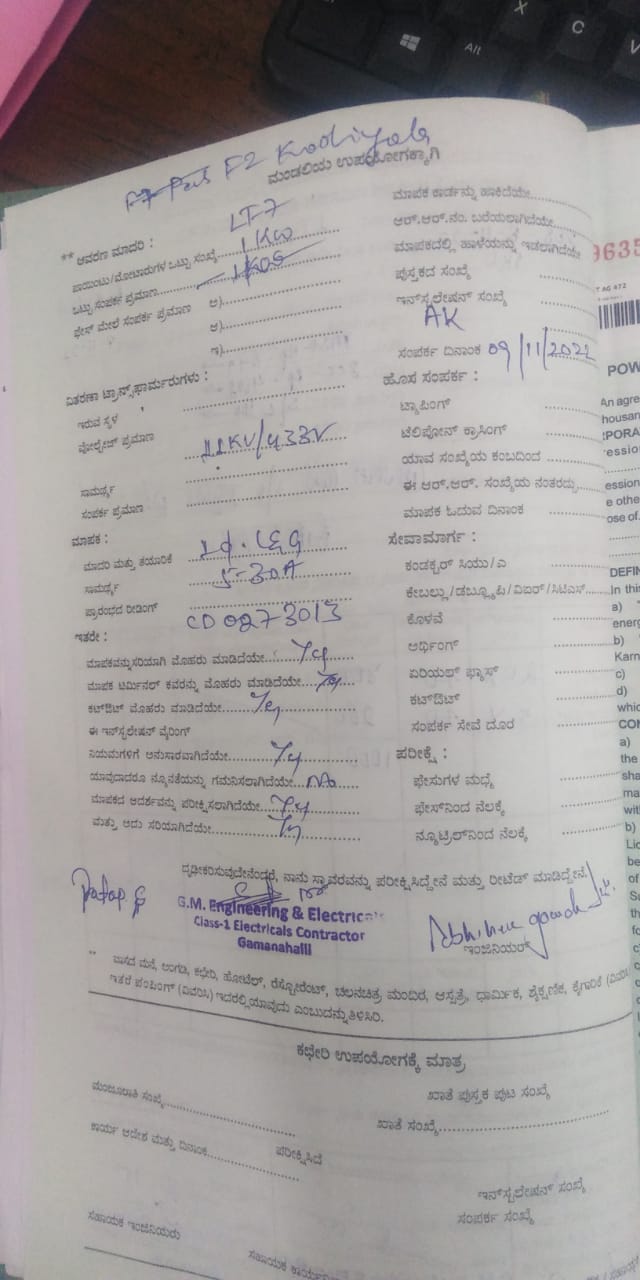 F2 Kodiyala
ಮಂಡಲಿಯ ಉಪಯೋಗಕ್ಕಾಗಿ
** ಆವರಣ ಮಾದರಿ : LT-7
ಪಾಯಿಂಟು/ಮೋಟಾರುಗಳ ಒಟ್ಟು ಸಂಖ್ಯೆ 1 KW
ಒಟ್ಟು ಸಂಪರ್ಕ ಪ್ರಮಾಣ
ಫೇಸ್ ಮೇಲೆ ಸಂಪರ್ಕ ಪ್ರಮಾಣ ಅ)
ಆ)
ಇ)
ವಿತರಣಾ ಟ್ರಾನ್ಸ್‌ಫಾರ್ಮರುಗಳು :
ಇರುವ ಸ್ಥಳ
ವೋಲ್ಟೇಜ್ ಪ್ರಮಾಣ 11KV/433V
ಸಾಮರ್ಥ್ಯ
ಸಂಪರ್ಕ ಪ್ರಮಾಣ
ಮಾಪಕ :
ಮಾದರಿ ಮತ್ತು ತಯಾರಿಕೆ
ಸಾಮರ್ಥ್ಯ 5-30A
ಪ್ರಾರಂಭದ ರೀಡಿಂಗ್ CD0273013
ಇತರೇ :
ಮಾಪಕವನ್ನು ಸರಿಯಾಗಿ ಮೊಹರು ಮಾಡಿದೆಯೇ Yes
ಮಾಪಕ ಟರ್ಮಿನಲ್ ಕವರನ್ನು ಮೊಹರು ಮಾಡಿದೆಯೇ Yes
ಕಟ್‌ಔಟ್ ಮೊಹರು ಮಾಡಿದೆಯೇ Yes
ಈ ಇನ್‌ಸ್ಟಲೇಷನ್ ವೈರಿಂಗ್
ನಿಯಮಗಳಿಗೆ ಅನುಸಾರವಾಗಿದೆಯೇ Yes
ಯಾವುದಾದರೂ ನ್ಯೂನತೆಯನ್ನು ಗಮನಿಸಲಾಗಿದೆಯೇ No
ಮಾಪಕದ ಆದರ್ಶವನ್ನು ಪರೀಕ್ಷಿಸಲಾಗಿದೆಯೇ Yes
ಮತ್ತು ಅದು ಸರಿಯಾಗಿದೆಯೇ Yes
ಮಾಪಕ ಕಾರ್ಡನ್ನು ಹಾಕಿದೆಯೇ
ಆರ್.ಆರ್.ನಂ. ಬರೆಯಲಾಗಿದೆಯೇ
ಮಾಪಕದಲ್ಲಿ ಹಾಳೆಯನ್ನು ಇಡಲಾಗಿದೆಯೇ
ಪುಸ್ತಕದ ಸಂಖ್ಯೆ
ಇನ್‌ಸ್ಟಲೇಷನ್ ಸಂಖ್ಯೆ
AK
ಸಂಪರ್ಕ ದಿನಾಂಕ 09/11/2022
ಹೊಸ ಸಂಪರ್ಕ :
ಟ್ಯಾಪಿಂಗ್
ಟೆಲಿಫೋನ್ ಕ್ರಾಸಿಂಗ್
ಯಾವ ಸಂಖ್ಯೆಯ ಕಂಬದಿಂದ
ಈ ಆರ್.ಆರ್. ಸಂಖ್ಯೆಯ ನಂತರದ್ದು
ಮಾಪಕ ಓದುವ ದಿನಾಂಕ
ಸೇವಾಮಾರ್ಗ :
ಕಂಡಕ್ಟರ್ ಸಿಯು/ಎ
ಕೇಬಲ್ಲು/ಡಬ್ಲ್ಯೂಪಿ/ವಿಐಆರ್/ಸಿಟಿಎಸ್
ಕೊಳವೆ
ಅರ್ಥಿಂಗ್
ಏರಿಯಲ್ ಫ್ಯೂಸ್
ಕಟ್‌ಔಟ್
ಸಂಪರ್ಕ ಸೇವೆ ದೂರ
ಪರೀಕ್ಷೆ :
ಫೇಸುಗಳ ಮಧ್ಯೆ
ಫೇಸ್‌ನಿಂದ ನೆಲಕ್ಕೆ
ನ್ಯೂಟ್ರಲ್‌ನಿಂದ ನೆಲಕ್ಕೆ
ದೃಢೀಕರಿಸುವುದೇನೆಂದರೆ, ನಾನು ಸ್ಥಾವರವನ್ನು ಪರೀಕ್ಷಿಸಿದ್ದೇನೆ ಮತ್ತು ರೀಟೆಡ್ ಮಾಡಿದ್ದೇನೆ
G.M. Engineering & Electricals
Class-1 Electricals Contractor
Gamanahalli
ಇಂಜಿನಿಯರ್
** ವಾಸದ ಮನೆ, ಅಂಗಡಿ, ಕಛೇರಿ, ಹೋಟೆಲ್, ರೆಸ್ಟೋರೆಂಟ್, ಚಲನಚಿತ್ರ ಮಂದಿರ, ಆಸ್ಪತ್ರೆ, ಧಾರ್ಮಿಕ, ಶೈಕ್ಷಣಿಕ, ಕೈಗಾರಿಕೆ (ವಿವರಿಸಿ)
ಇತರೆ ಪಂಪಿಂಗ್ (ವಿವರಿಸಿ) ಇದರಲ್ಲಿ ಯಾವುದು ಎಂಬುದನ್ನು ತಿಳಿಸಿರಿ.
ಕಛೇರಿ ಉಪಯೋಗಕ್ಕೆ ಮಾತ್ರ
ಮಂಜೂರಾತಿ ಸಂಖ್ಯೆ
ಖಾತೆ ಪುಸ್ತಕ ಪುಟ ಸಂಖ್ಯೆ
ಕಾರ್ಯ ಆದೇಶ ಮತ್ತು ದಿನಾಂಕ
ಖಾತೆ ಸಂಖ್ಯೆ
ಪರೀಕ್ಷಿಸಿದೆ
ಇನ್‌ಸ್ಟಲೇಷನ್ ಸಂಖ್ಯೆ
ಸಂಪರ್ಕ ಸಂಖ್ಯೆ
ಸಹಾಯಕ ಇಂಜಿನಿಯರು
9635
AG 472
POW
An agre
DEFIN
In this
a)
energ
b)
Karn
c)
d)